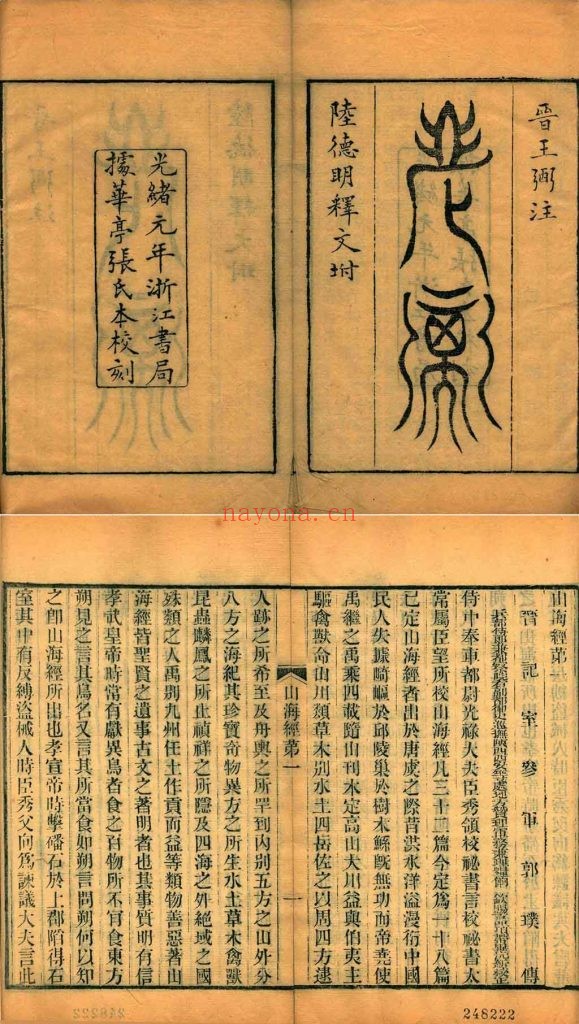 晉王弼注
老子
陸德明釋文坿
光緒元年浙江書局
據華亭張氏本校刻
nayona.cn
山海經第一
晉記室參軍郭璞傳
侍中奉車都尉光祿大夫臣秀領校祕書言校祕書太
常屬臣望所校山海經凡三十二篇今定爲一十八篇
已定山海經者出於唐虞之際昔洪水洋溢漫衍中國
民人失據崎嶇於邱陵巢於樹木鯀旣無功而帝堯使
禹繼之禹乘四載隨山刊木定高山大川益與伯夷主
驅禽獸命山川類草木別水土四岳佐之以周四方逮
山海經第一
一
人跡之所希至及舟輿之所罕到內別五方之山外分
八方之海紀其珍寶奇物異方之所生水土草木禽獸
昆蟲麟鳳之所止禎祥之所隱及四海之外絕域之國
殊類之人禹別九州任土作貢而益等類物善惡著山
海經皆聖賢之遺事古文之著明者也其事質明有信
孝武皇帝時常有獻異鳥者食之百物所不肯食東方
朔見之言其鳥名又言其所當食如朔言問朔何以知
之卽山海經所出也孝宣帝時擊磻石於上郡陷得石
室其中有反縛盜械人時臣秀父向爲諫議大夫言此
248222